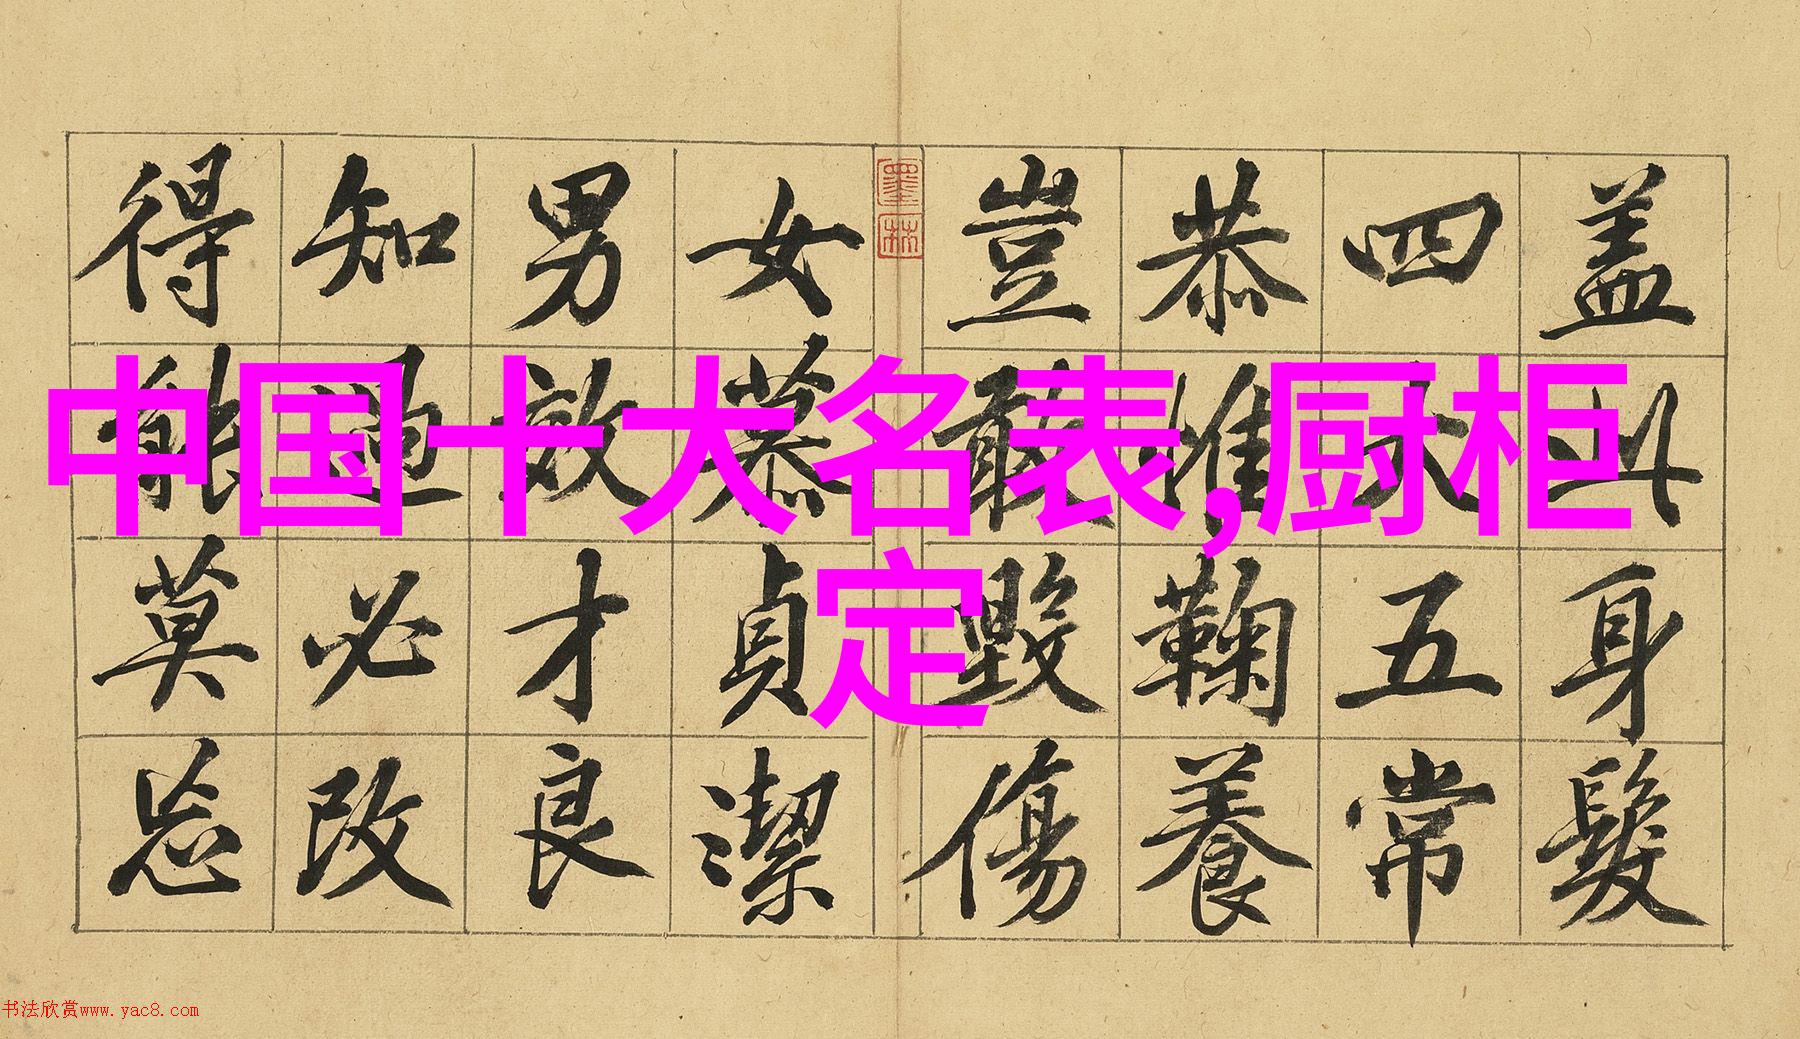 中国十大名表,厨柜
定
盖此身髮
四大五常
恭惟鞠養
豈敢毀傷
墨林
女慕貞潔
男效才良
知過必改
得能莫忘
书法欣赏www.yac8.com